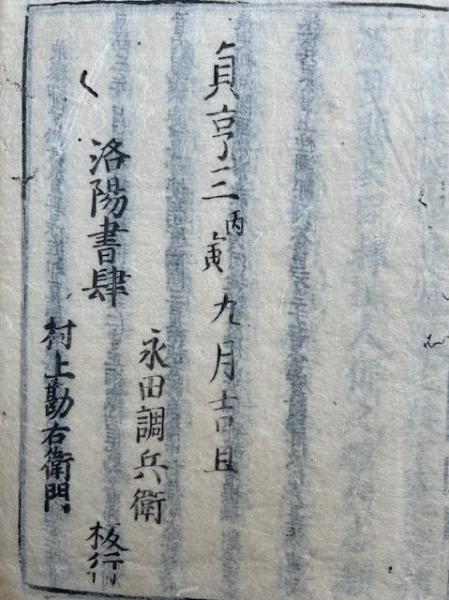 貞享三丙寅九月吉旦
洛陽書肆
永田調兵衛
村上勘右衛門
板行